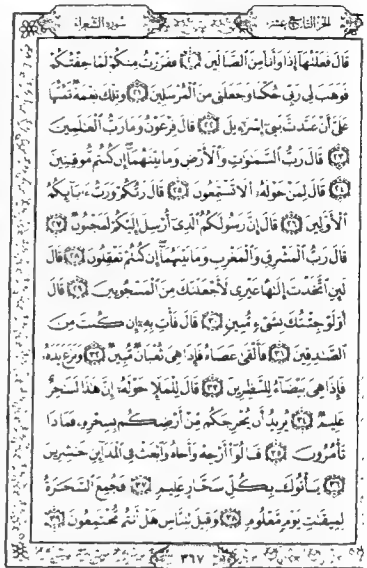 الجزء التاسع عشر سورة الشعراء
قَالَ فَعَلْتُهَا إِذًا وَأَنَا۠ مِنَ ٱلضَّآلِّينَ ٢٠ فَفَرَرْتُ مِنكُمْ لَمَّا خِفْتُكُمْ
فَوَهَبَ لِى رَبِّى حُكْمًا وَجَعَلَنِى مِنَ ٱلْمُرْسَلِينَ ٢١ وَتِلْكَ نِعْمَةٌ تَمُنُّهَا
عَلَىَّ أَنْ عَبَّدتَّ بَنِىٓ إِسْرَٰٓءِيلَ ٢٢ قَالَ فِرْعَوْنُ وَمَا رَبُّ ٱلْعَٰلَمِينَ
٢٣ قَالَ رَبُّ ٱلسَّمَٰوَٰتِ وَٱلْأَرْضِ وَمَا بَيْنَهُمَآ إِن كُنتُم مُّوقِنِينَ
٢٤ قَالَ لِمَنْ حَوْلَهُۥٓ أَلَا تَسْتَمِعُونَ ٢٥ قَالَ رَبُّكُمْ وَرَبُّ ءَابَآئِكُمُ
ٱلْأَوَّلِينَ ٢٦ قَالَ إِنَّ رَسُولَكُمُ ٱلَّذِىٓ أُرْسِلَ إِلَيْكُمْ لَمَجْنُونٌ ٢٧
قَالَ رَبُّ ٱلْمَشْرِقِ وَٱلْمَغْرِبِ وَمَا بَيْنَهُمَآ إِن كُنتُمْ تَعْقِلُونَ ٢٨ قَالَ
لَئِنِ ٱتَّخَذْتَ إِلَٰهًا غَيْرِى لَأَجْعَلَنَّكَ مِنَ ٱلْمَسْجُونِينَ ٢٩ قَالَ
أَوَلَوْ جِئْتُكَ بِشَىْءٍ مُّبِينٍ ٣٠ قَالَ فَأْتِ بِهِۦٓ إِن كُنتَ مِنَ
ٱلصَّٰدِقِينَ ٣١ فَأَلْقَىٰ عَصَاهُ فَإِذَا هِىَ ثُعْبَانٌ مُّبِينٌ ٣٢ وَنَزَعَ يَدَهُۥ
فَإِذَا هِىَ بَيْضَآءُ لِلنَّٰظِرِينَ ٣٣ قَالَ لِلْمَلَإِ حَوْلَهُۥٓ إِنَّ هَٰذَا لَسَٰحِرٌ
عَلِيمٌ ٣٤ يُرِيدُ أَن يُخْرِجَكُم مِّنْ أَرْضِكُم بِسِحْرِهِۦ فَمَاذَا
تَأْمُرُونَ ٣٥ قَالُوٓا۟ أَرْجِهْ وَأَخَاهُ وَٱبْعَثْ فِى ٱلْمَدَآئِنِ حَٰشِرِينَ
٣٦ يَأْتُوكَ بِكُلِّ سَحَّارٍ عَلِيمٍ ٣٧ فَجُمِعَ ٱلسَّحَرَةُ
لِمِيقَٰتِ يَوْمٍ مَّعْلُومٍ ٣٨ وَقِيلَ لِلنَّاسِ هَلْ أَنتُم مُّجْتَمِعُونَ ٣٩
٣٦٧